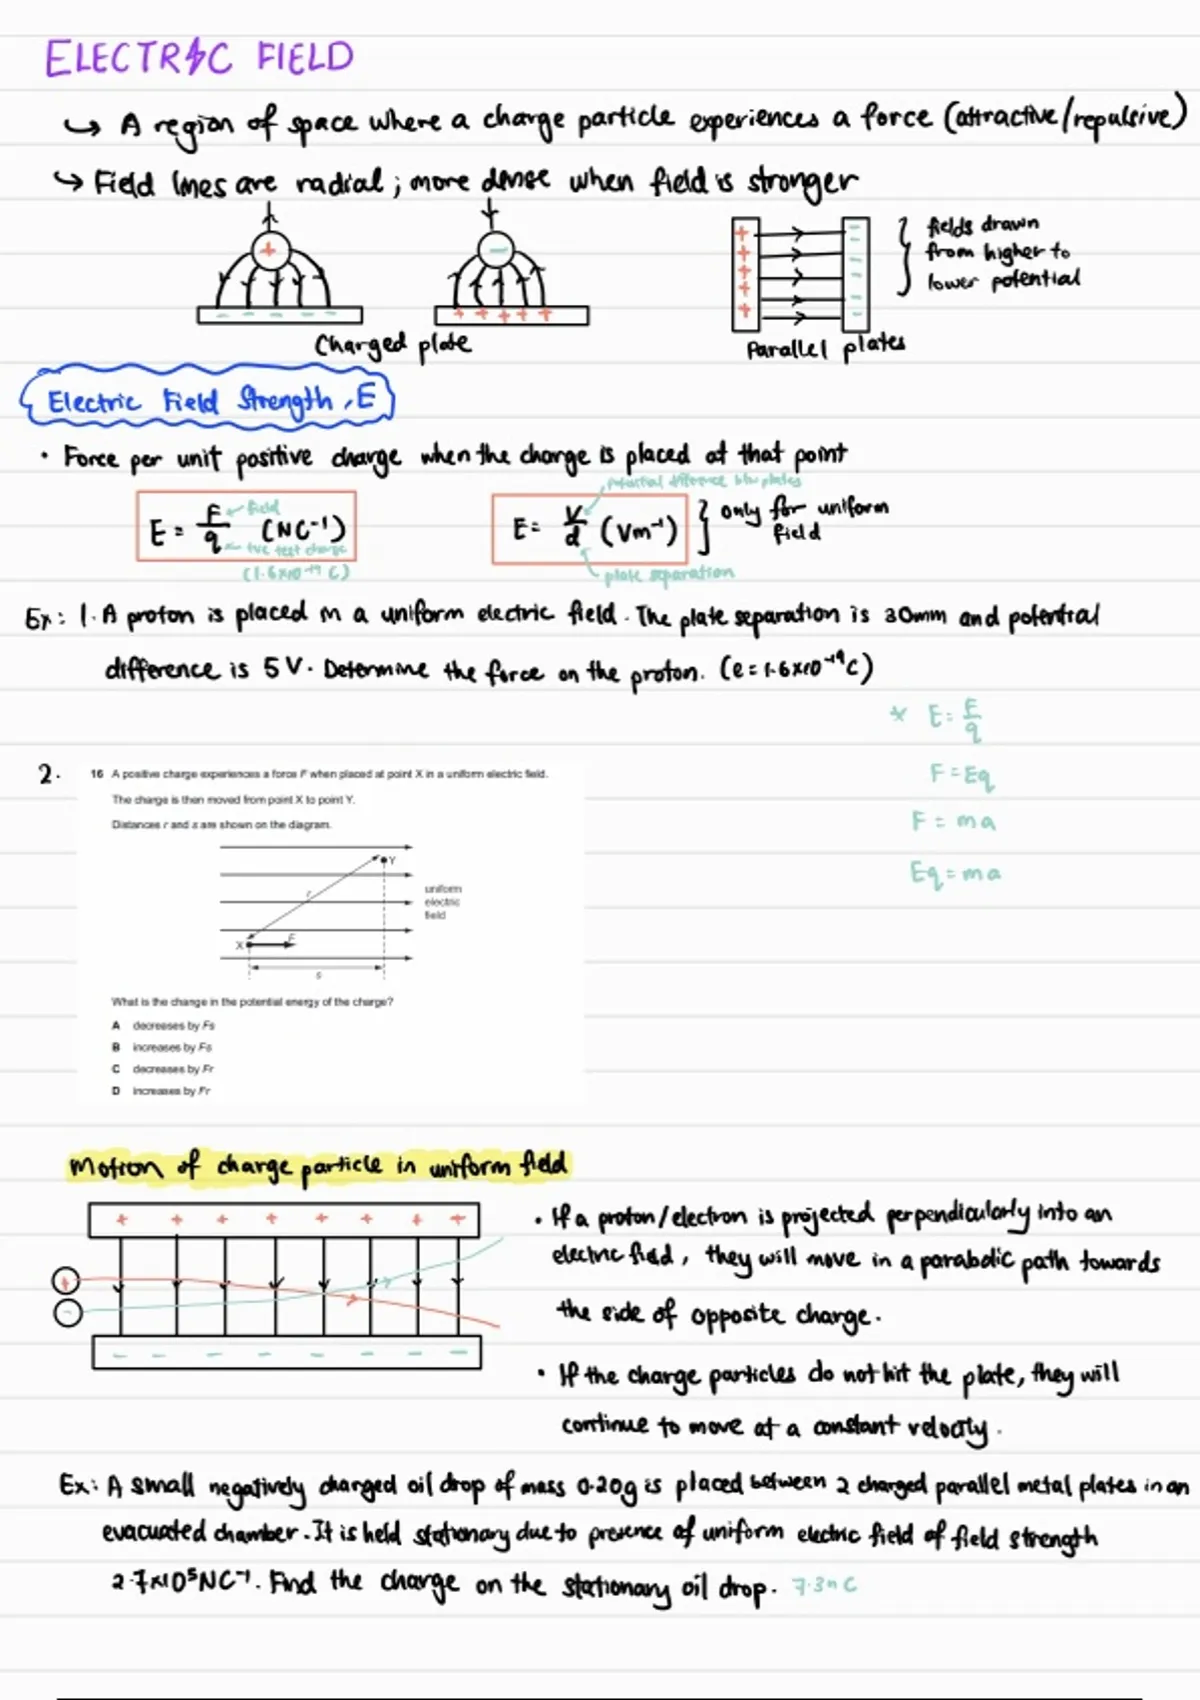 ELECTRIC FIELD
↳ A region of space where a charge particle experiences a force (attractive/repulsive)
↳ Field lines are radial; more dense when field is stronger
+
−
+ + + + +
− − − − −
− − − − −
+ + + + +
fields drawn
from higher to
lower potential
Charged plate
Parallel plates
Electric Field Strength, E
• Force per unit positive charge when the charge is placed at that point
potential difference btw plates
E = F/q (NC⁻¹)
field
+ve test charge
(1.6×10⁻¹⁹ C)
E = V/d (Vm⁻¹)
only for uniform
field
plate separation
Ex: 1. A proton is placed in a uniform electric field. The plate separation is 30mm and potential
difference is 5V. Determine the force on the proton. (e = 1.6×10⁻¹⁹C)
* E = F/q
F = Eq
F = ma
Eq = ma
2.
16 A positive charge experiences a force F when placed at point X in a uniform electric field.
The charge is then moved from point X to point Y.
Distances r and s are shown on the diagram.
Y
r
uniform
electric
field
X
F
s
What is the change in the potential energy of the charge?
A decreases by Fs
B increases by Fs
C decreases by Fr
D increases by Fr
Motion of charge particle in uniform field
+ + + + + + + +
+
−
− − − − − − − −
• If a proton/electron is projected perpendicularly into an
electric field, they will move in a parabolic path towards
the side of opposite charge.
• If the charge particles do not hit the plate, they will
continue to move at a constant velocity.
Ex: A small negatively charged oil drop of mass 0.20g is placed between 2 charged parallel metal plates in an
evacuated chamber. It is held stationary due to presence of uniform electric field of field strength
2.7×10⁵NC⁻¹. Find the charge on the stationary oil drop. 7.3nC